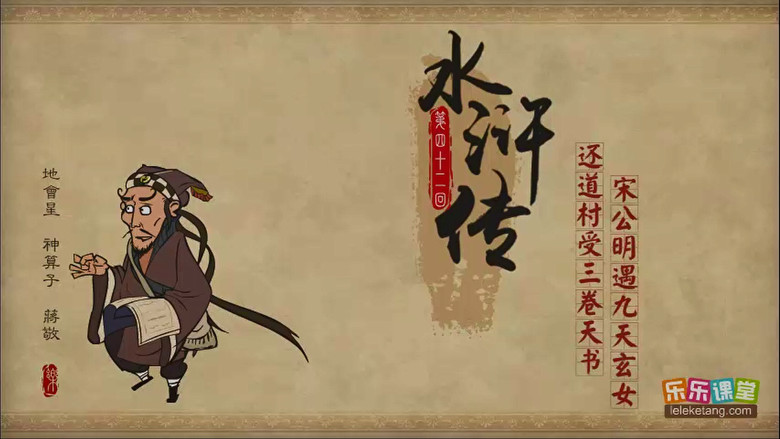 水浒传
第四十二回
还道村受三卷天书
宋公明遇九天玄女
地會星 神算子 蔣敬
樂
乐乐课堂
leleketang.com